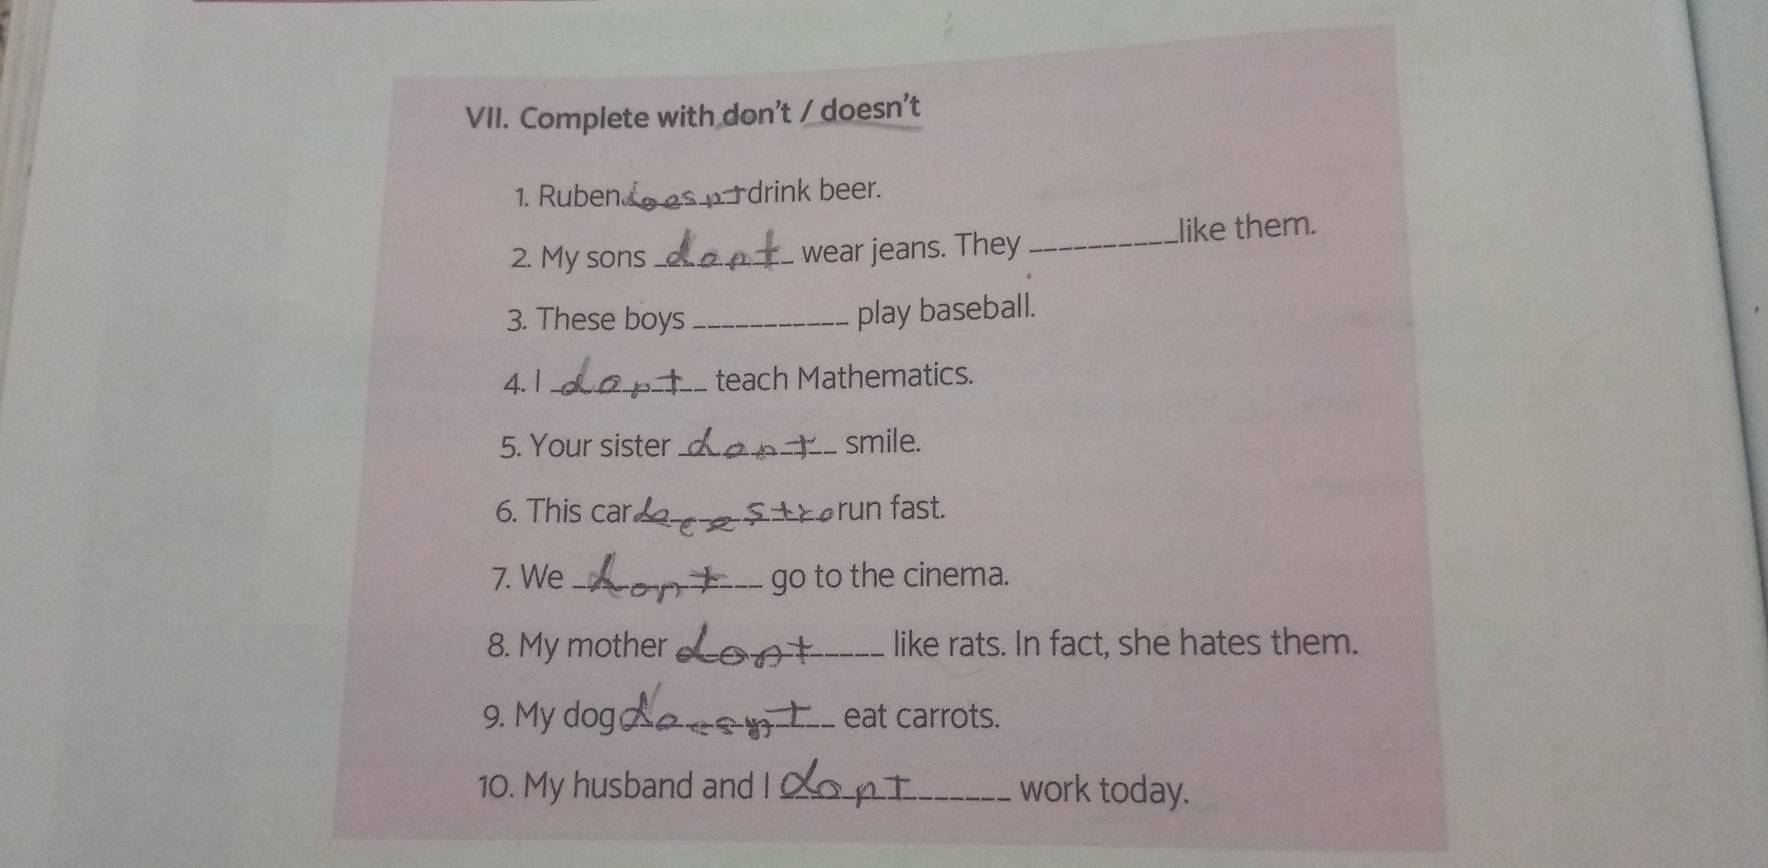 VII. Complete with don't / doesn't
1. Ruben doesnt drink beer.
2. My sons dont wear jeans. They ___________ like them.
3. These boys ___________ play baseball.
4. I dont teach Mathematics.
5. Your sister dont smile.
6. This car run fast.
7. We dont go to the cinema.
8. My mother dont like rats. In fact, she hates them.
9. My dog doesnt eat carrots.
10. My husband and I dont work today.